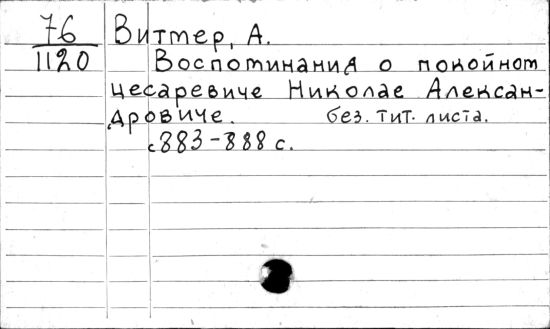 76
1120
Витмер, А.
Воспоминания о покойном
цесаревиче Николае Алексан-
дровиче. без. тит. листа.
с 883-888 с.